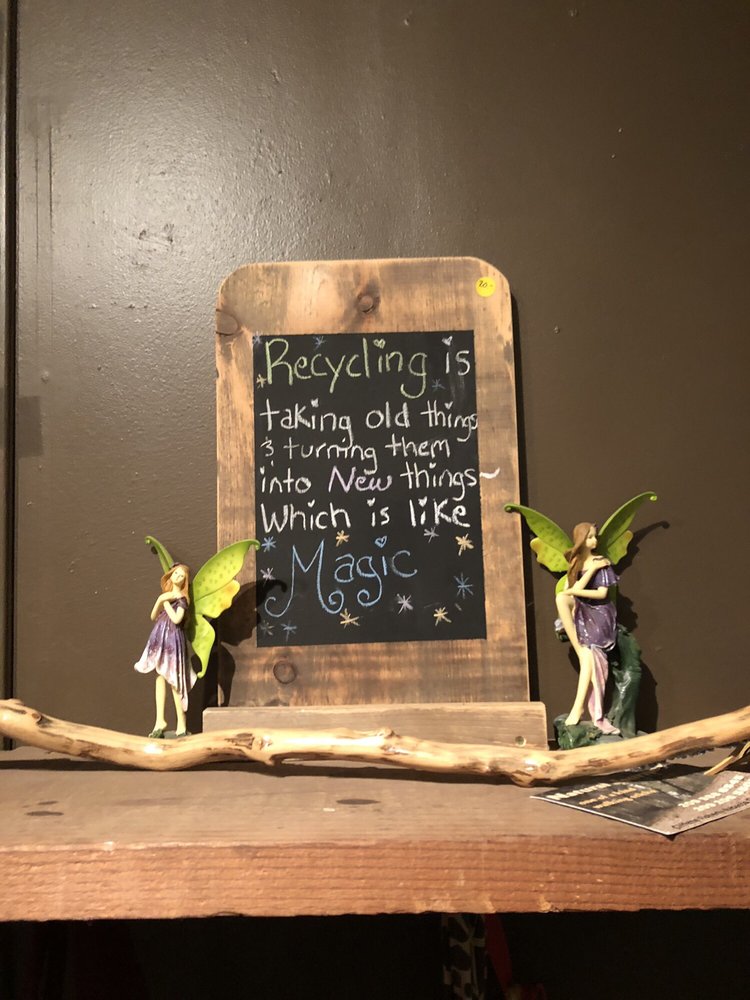 20-
Recycling is
taking old things
& turning them
into New things~
Which is like
Magic